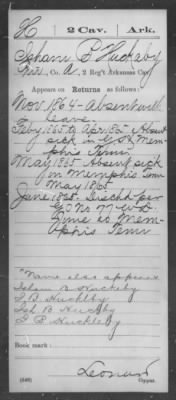 H 2 Cav. Ark.
Isham P Huckaby
Pvt., Co. A, 2 Reg't Arkansas Cav.
Appears on Returns as follows:
Nov 1864 - Absent with
leave.
Feby 1865 to Apr 1865 Absent
sick in G.S.H. Mem-
phis Tenn
May 1865 Absent sick
in Memphis Tenn
May 1865.
June 1865. Disch'd per
G.O. No
Mem-
phis Tenn
"Name also appears
Isham B Huckeby
I B Huckleby
Ish B Huckby
G P Huckleby
Book mark:
Leonard
(546) Copyist.